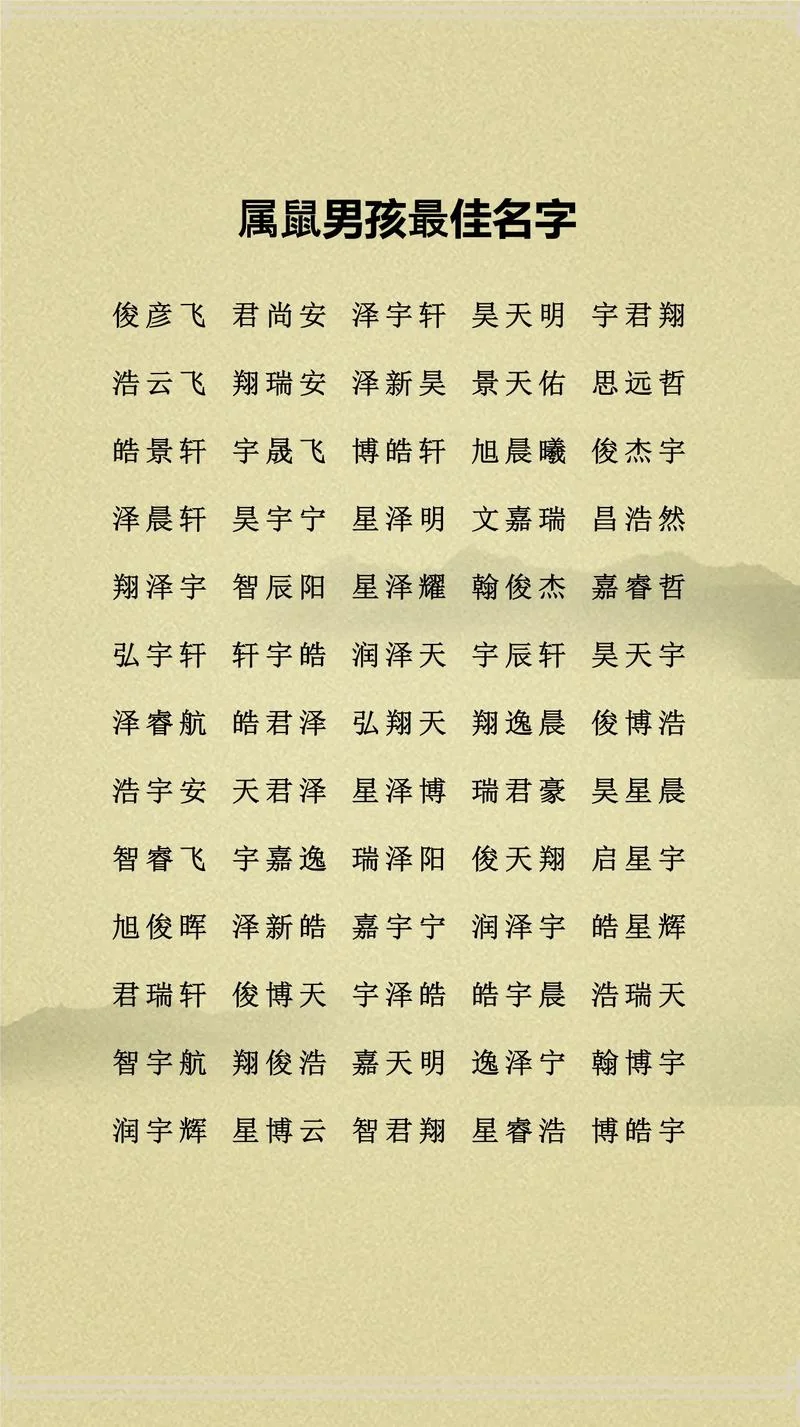 属鼠男孩最佳名字
俊彦飞 君尚安 泽宇轩 昊天明 宇君翔
浩云飞 翔瑞安 泽新昊 景天佑 思远哲
皓景轩 宇晟飞 博皓轩 旭晨曦 俊杰宇
泽晨轩 昊宇宁 星泽明 文嘉瑞 昌浩然
翔泽宇 智辰阳 星泽耀 翰俊杰 嘉睿哲
弘宇轩 轩宇皓 润泽天 宇辰轩 昊天宇
泽睿航 皓君泽 弘翔天 翔逸晨 俊博浩
浩宇安 天君泽 星泽博 瑞君豪 昊星晨
智睿飞 宇嘉逸 瑞泽阳 俊天翔 启星宇
旭俊晖 泽新皓 嘉宇宁 润泽宇 皓星辉
君瑞轩 俊博天 宇泽皓 皓宇晨 浩瑞天
智宇航 翔俊浩 嘉天明 逸泽宁 翰博宇
润宇辉 星博云 智君翔 星睿浩 博皓宇